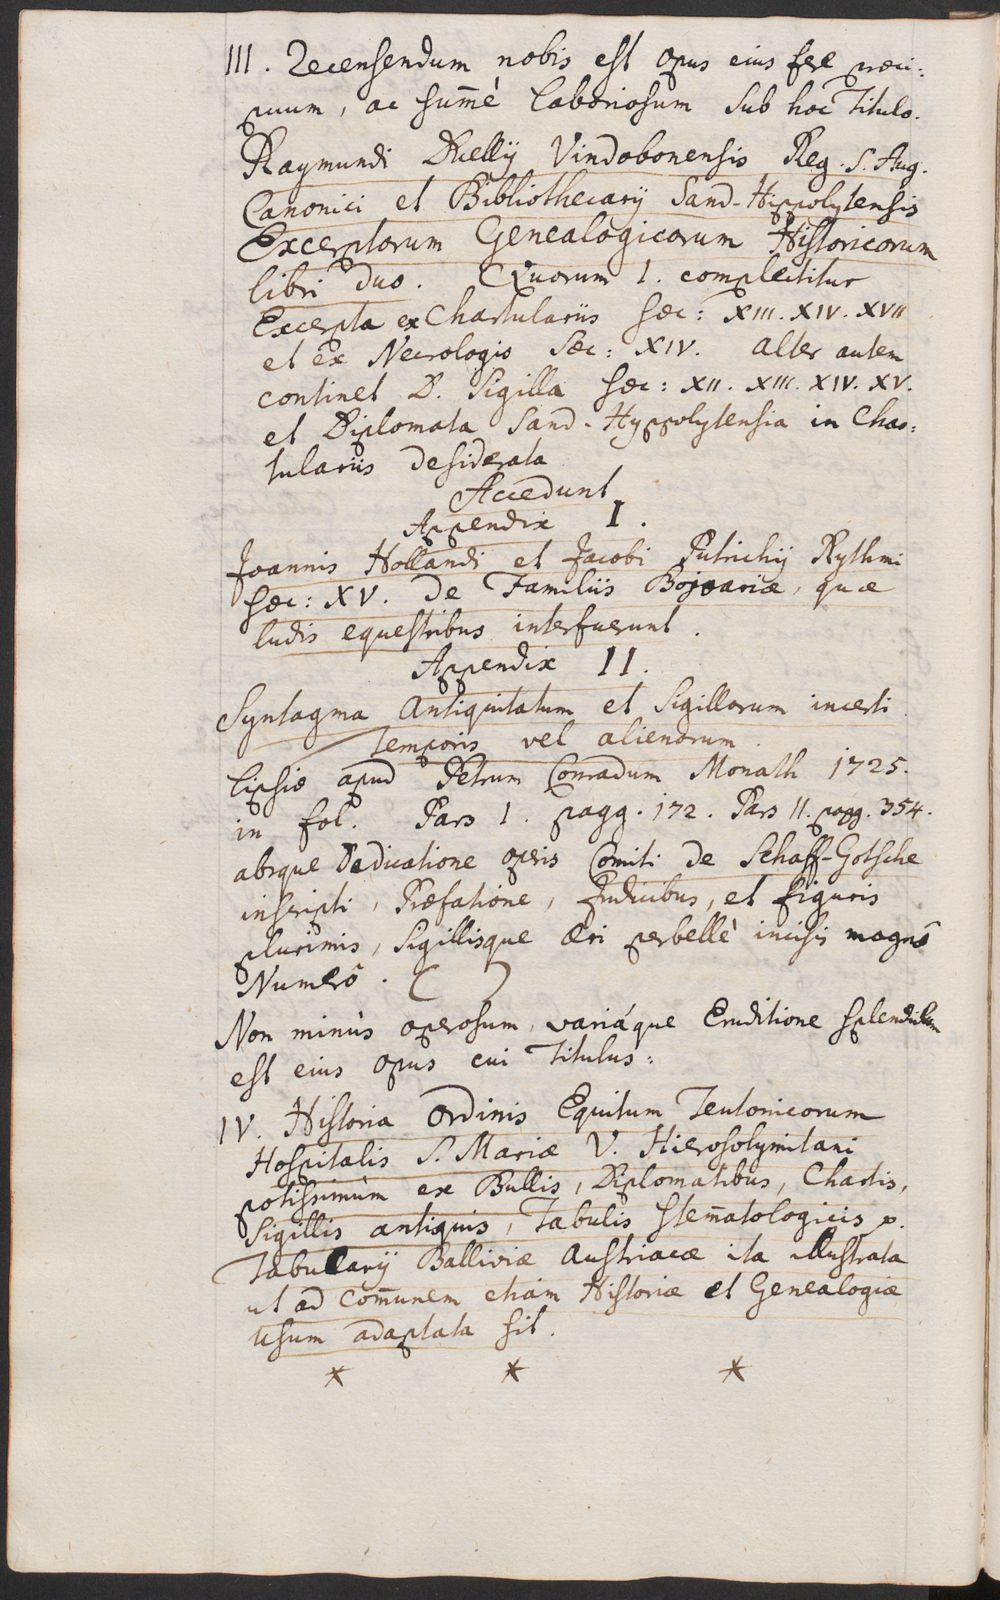 III. Recensendum nobis est opus eius fere praeci:
puum, ac sum̄è laboriosum sub hoc Titulo.
Raymundi Duellij Vindobonensis Reg. S. Aug.
Canonici et Bibliothecarij Sand-Hippolytensis
Excerptorum Genealogicorum Historicorum
libri duo. Quorum I. complectitur
Excerpta ex Chartulariis Saec: XIII. XIV. XVII
et ex Necrologio Saec: XIV. alter autem
continet D. Sigilla Saec: XII. XIII. XIV. XV.
et Diplomata Sand-Hyppolytensia in Char:
tulariis desiderata
Accedunt
Appendix I.
Joannis Hollandi et Jacobi Putrichij Rythmi
Saec: XV. de Familiis Bojoariae, quae
ludis equestribus interfuerunt.
Appendix II.
Syntagma Antiquitatum et Sigillorum incerti
Temporis vel alienorum.
Lipsiae apud Petrum Conradum Monath 1725.
in fol. Pars I. pagg. 172. Pars II. pagg. 354.
absque Dedicatione operis Comiti de Schaff-Gotsche
inscripti, Praefatione, Indicibus, et figuris
plurimis, Sigillisque aeri perbellè incisis magnô
Numerô.
Non minùs operosum, variáque Eruditione splendidum
est eius opus cui Titulus:
IV. Historia Ordinis Equitum Teutonicorum
Hospitalis S. Mariae V. Hierosolymitani
potissimùm ex Bullis, Diplomatibus, Chartis,
Sigillis antiquis, Tabulis Stem̄atologicis p.
Tabularij Balliviae Austriacae ita illustrata
ut ad Com̄unem etiam Historiae et Genealogiae
Usum adaptata sit.
* * *